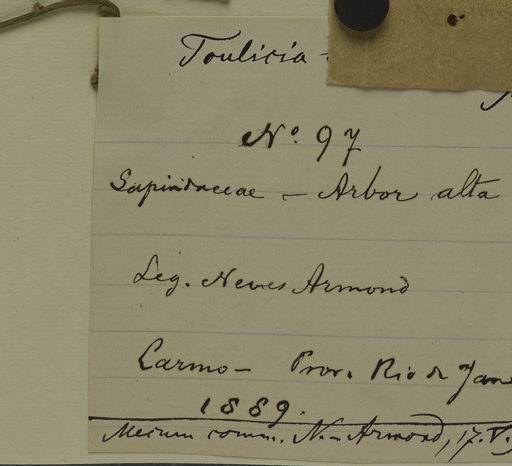 Toulicia -
No. 97
Sapindaceae - Arbor alta
Leg. Neves Armond
Carmo - Prov. Rio de Jan
1889.
Mecum comm. N. Armond, 17. V.